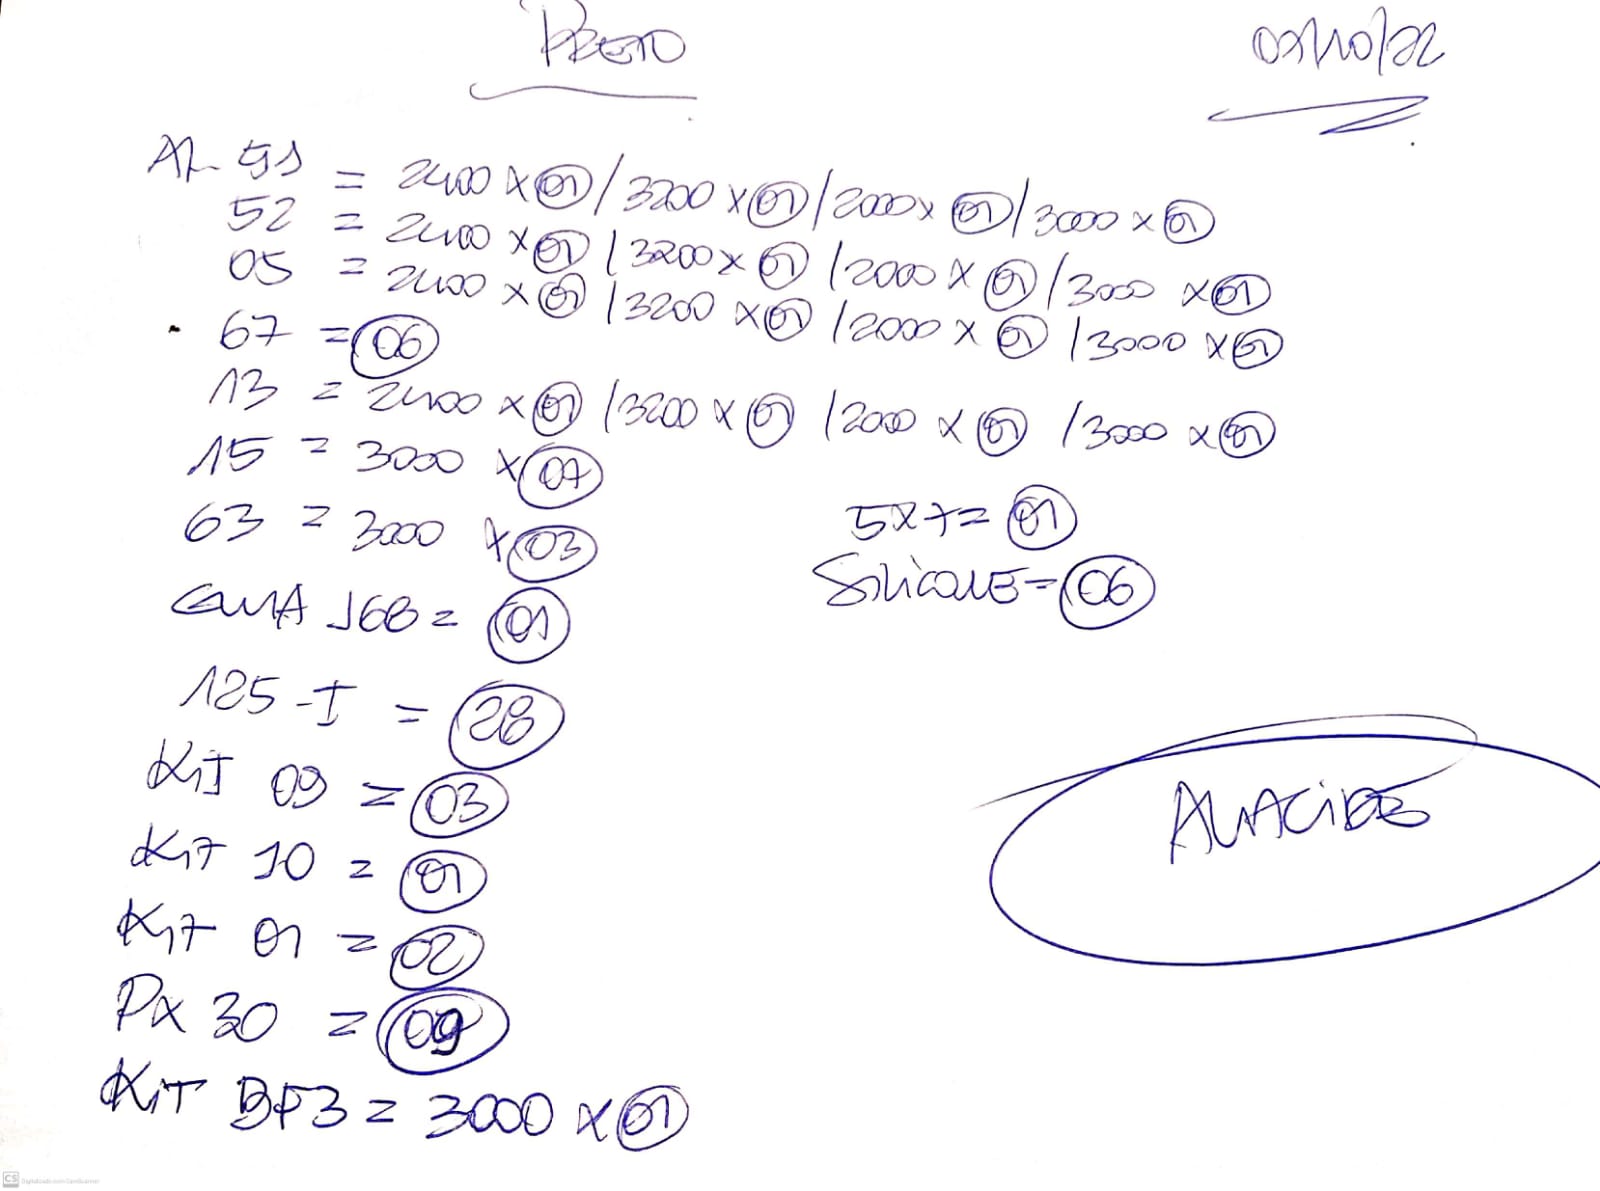 PRETO 07/10/22
AL 51 = 2400 x 01 / 3200 x 01 / 2000 x 01 / 3000 x 01
52 = 2400 x 01 / 3200 x 01 / 2000 x 01 / 3000 x 01
05 = 2400 x 01 / 3200 x 01 / 2000 x 01 / 3000 x 01
67 = 06
13 = 2400 x 01 / 3200 x 01 / 2000 x 01 / 3000 x 01
15 = 3000 x 07
63 = 3000 x 03
5x7 = 01
SiliCONE = 06
GUIA 168 = 01
125 - I = 28
KiT 09 = 03
KiT 10 = 01
KiT 01 = 02
PX 30 = 09
KiT BF3 = 3000 x 01
CS Digitalizado com CamScanner